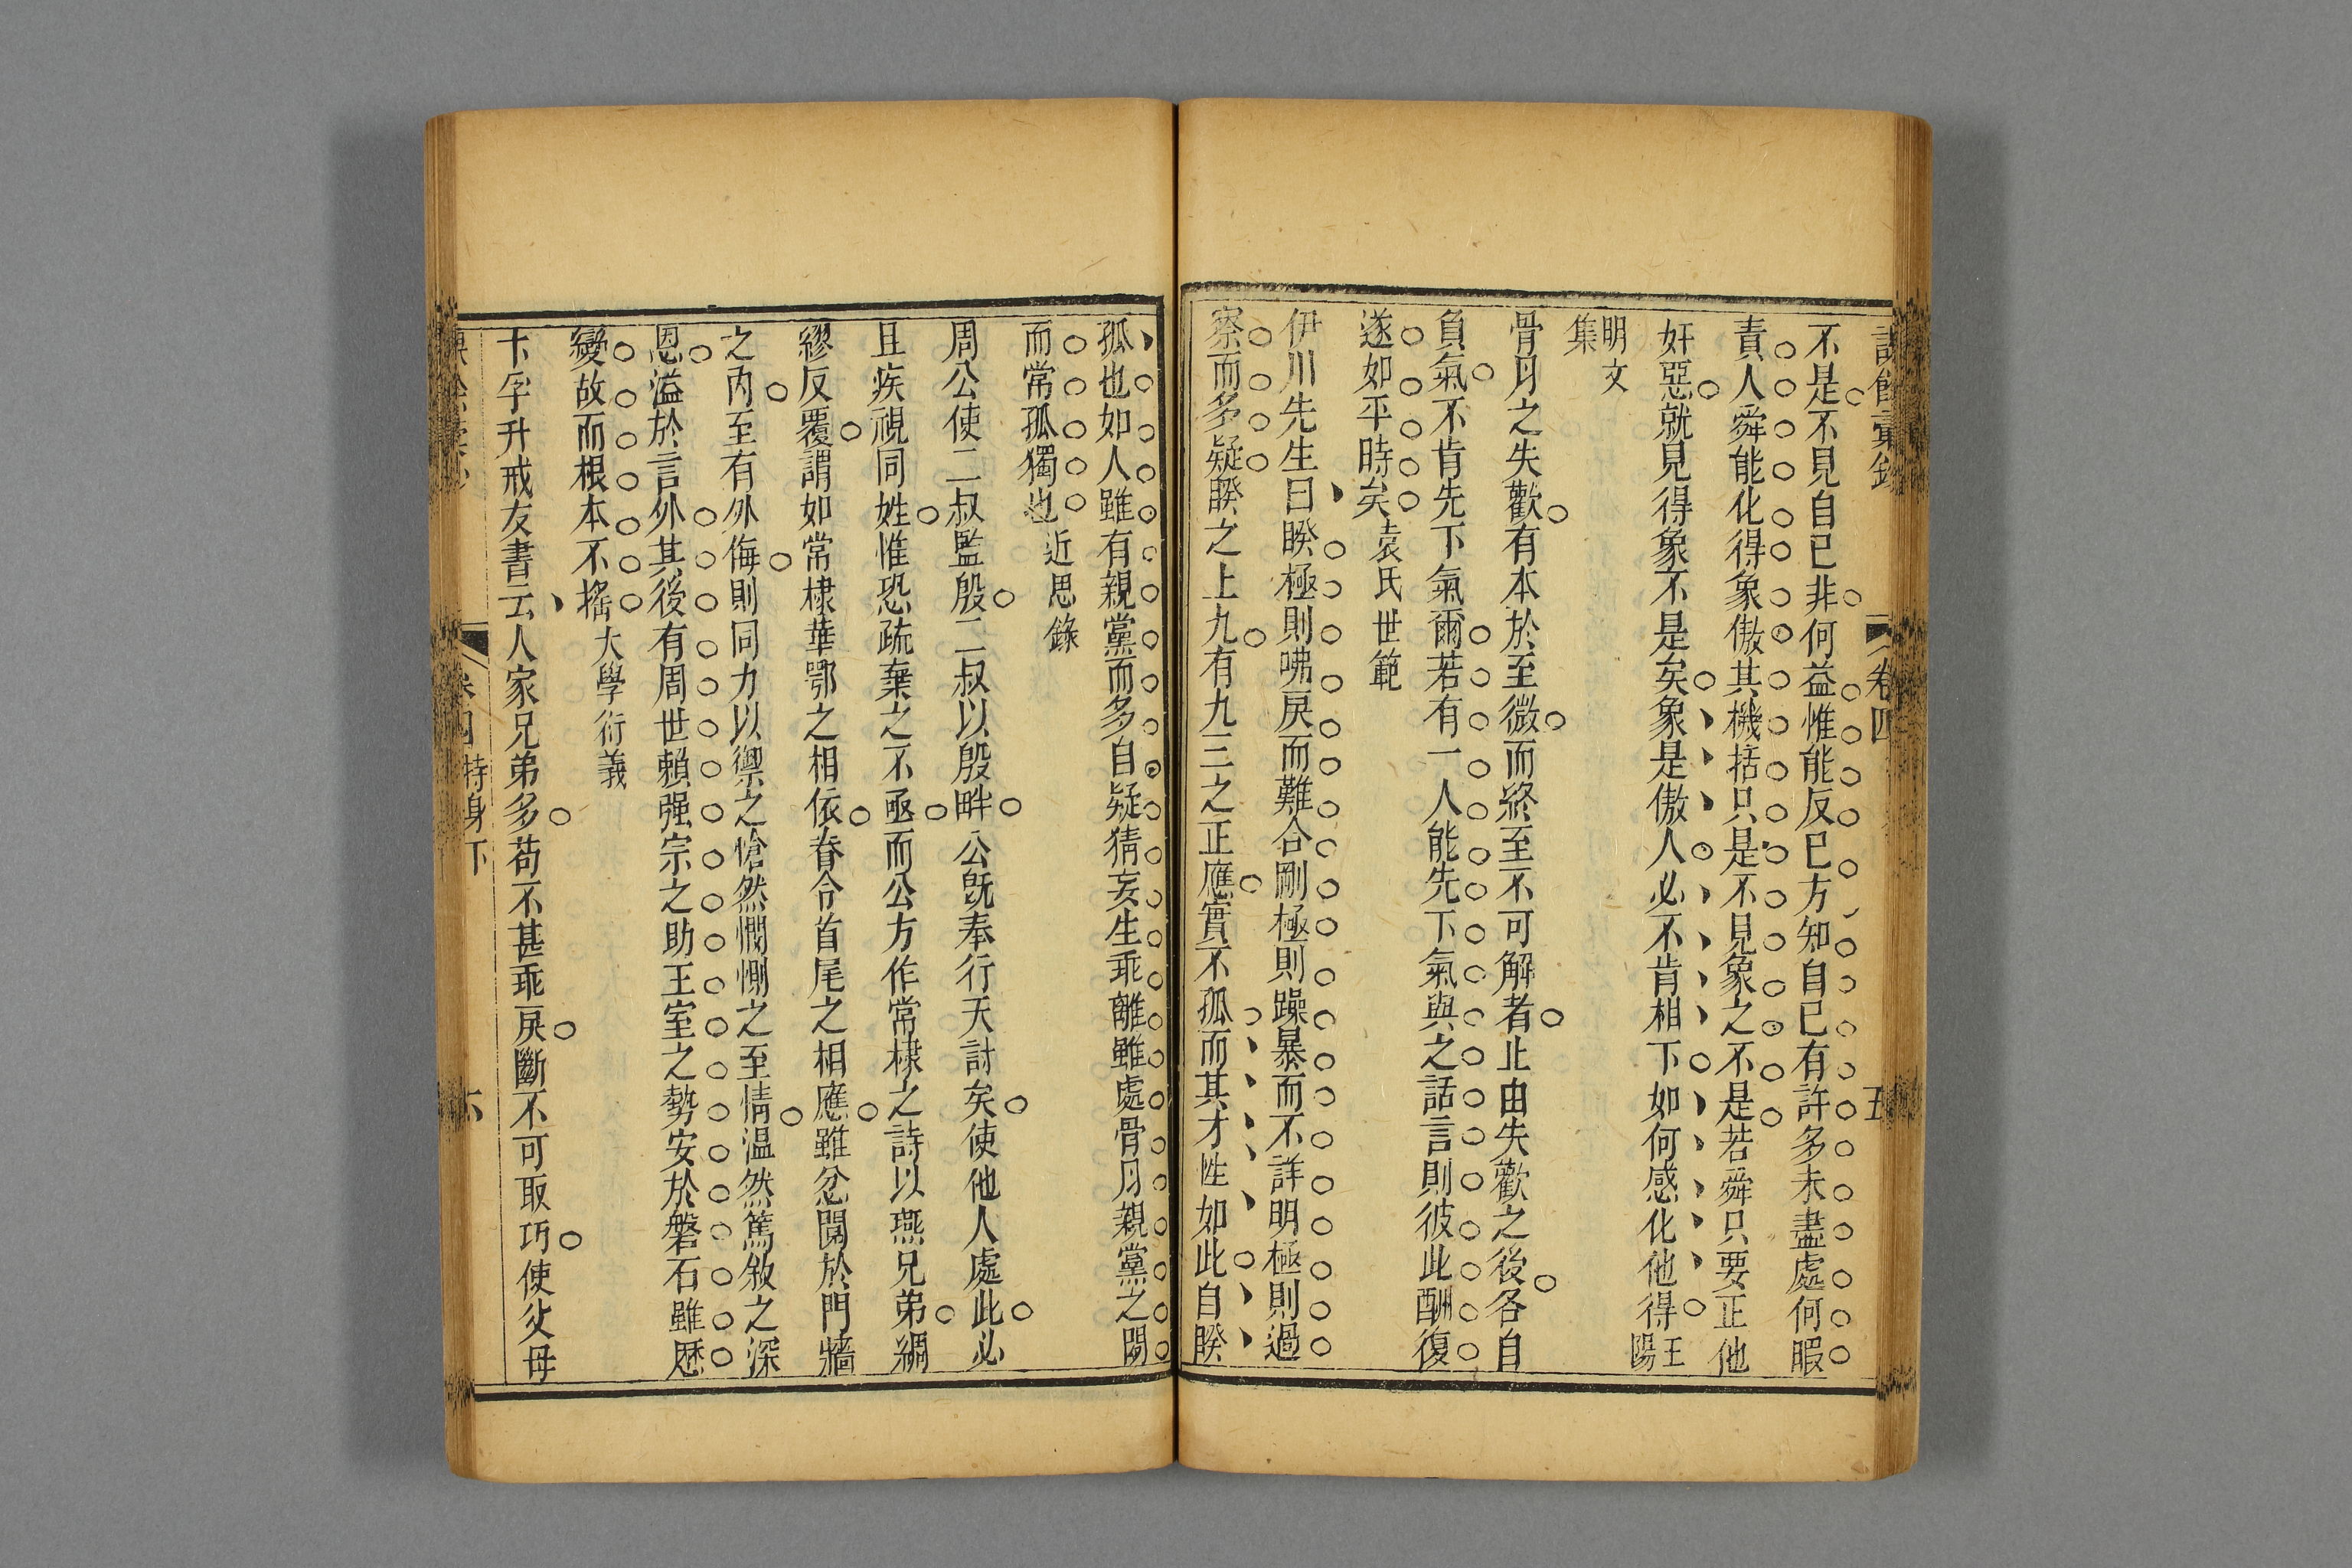 卷四
五
不是不見自己非何益惟能反己方知自己有許多未盡處何暇
責人舜能化得象傲其機括只是不見象之不是若舜只要正他
奸惡就見得象不是矣象是傲人必不肯相下如何感化他得王陽
明文集
骨月之失歡有本於至微而終至不可解者止由失歡之後各自
負氣不肯先下氣爾若有一人能先下氣與之話言則彼此酬復
遂如平時矣袁氏世範
伊川先生曰睽極則咈戾而難合剛極則躁暴而不詳明極則過
察而多疑睽之上九有九三之正應實不孤而其才性如此自睽
孤也如人雖有親黨而多自疑猜妄生乖離雖處骨月親黨之間
而常孤獨也近思錄
周公使二叔監殷二叔以殷畔公旣奉行天討矣使他人處此必
且疾視同姓惟恐疏棄之不亟而公方作常棣之詩以燕兄弟綢
繆反覆謂如常棣華鄂之相依脊令首尾之相應雖忿鬩於門牆
之內至有外侮則同力以禦之愴然憫惻之至情温然篤敘之深
恩溢於言外其後有周世賴强宗之助王室之勢安於磐石雖歷
變故而根本不搖大學衍義
卞孚升戒友書云人家兄弟多苟不甚乖戾斷不可取巧使父母
持身下
六